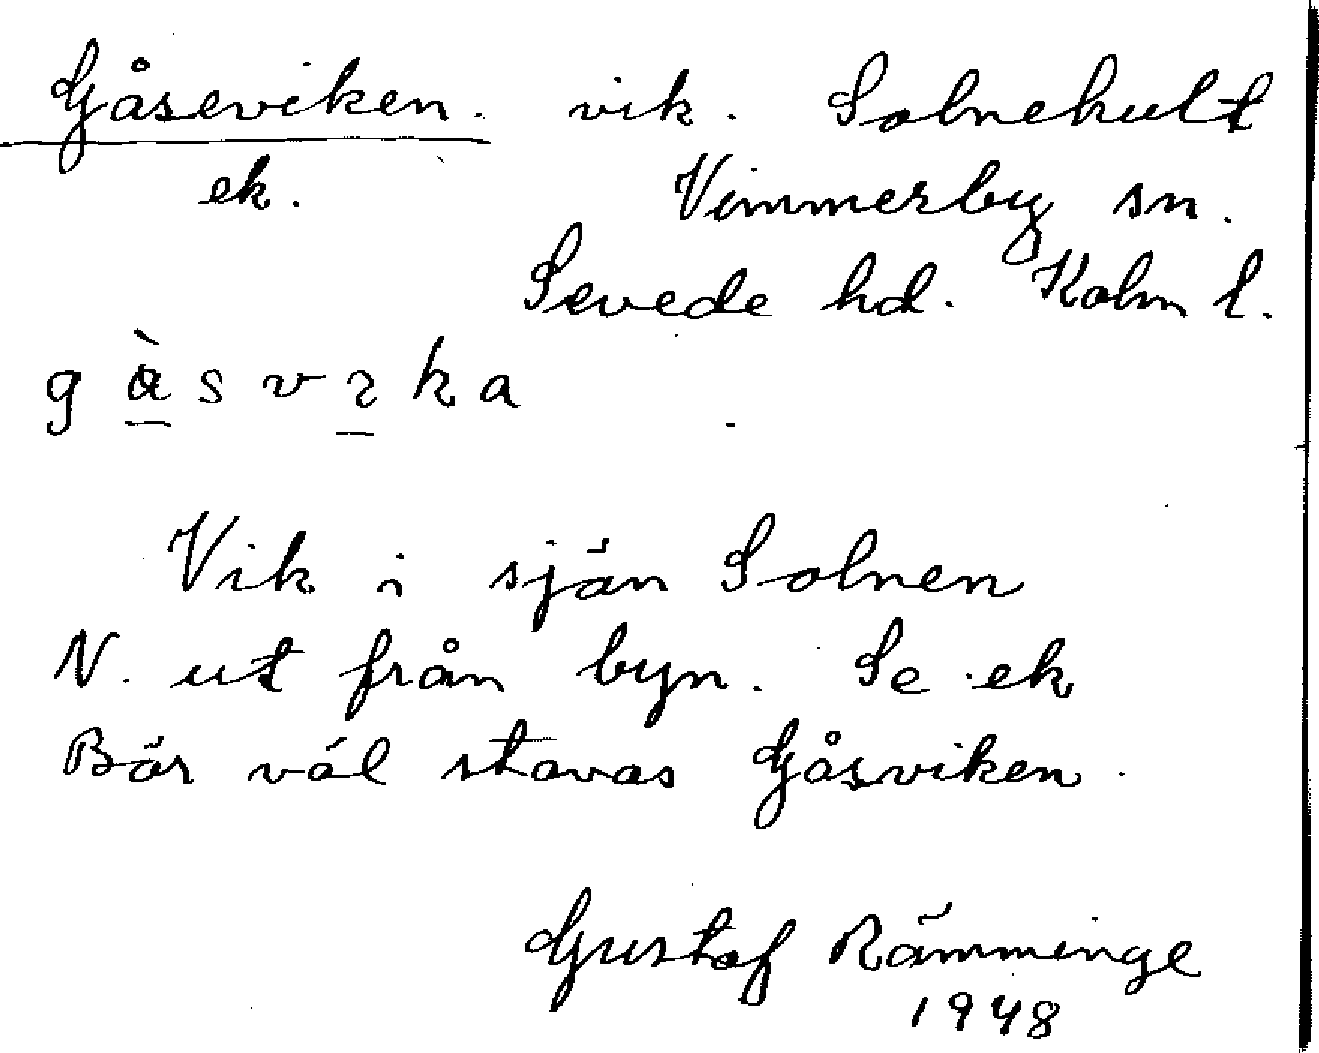 Gåseviken. vik. Solnehult
ek. Vimmerby sn.
Sevede hd. Kalm l.
g à s v ɿ k a
Vik i sjön Solnen
N. ut från byn. Se ek
Bör väl stavas Gåsviken.
Gustaf Rämminge
1948